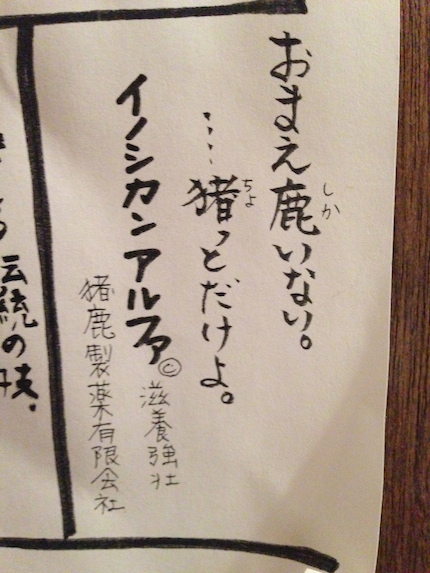 おまえ鹿いない。
しか
‥‥猪っとだけよ。
ちょ
イノシカンアルファ©
滋養強壮
猪鹿製薬有限会社
伝統の技.